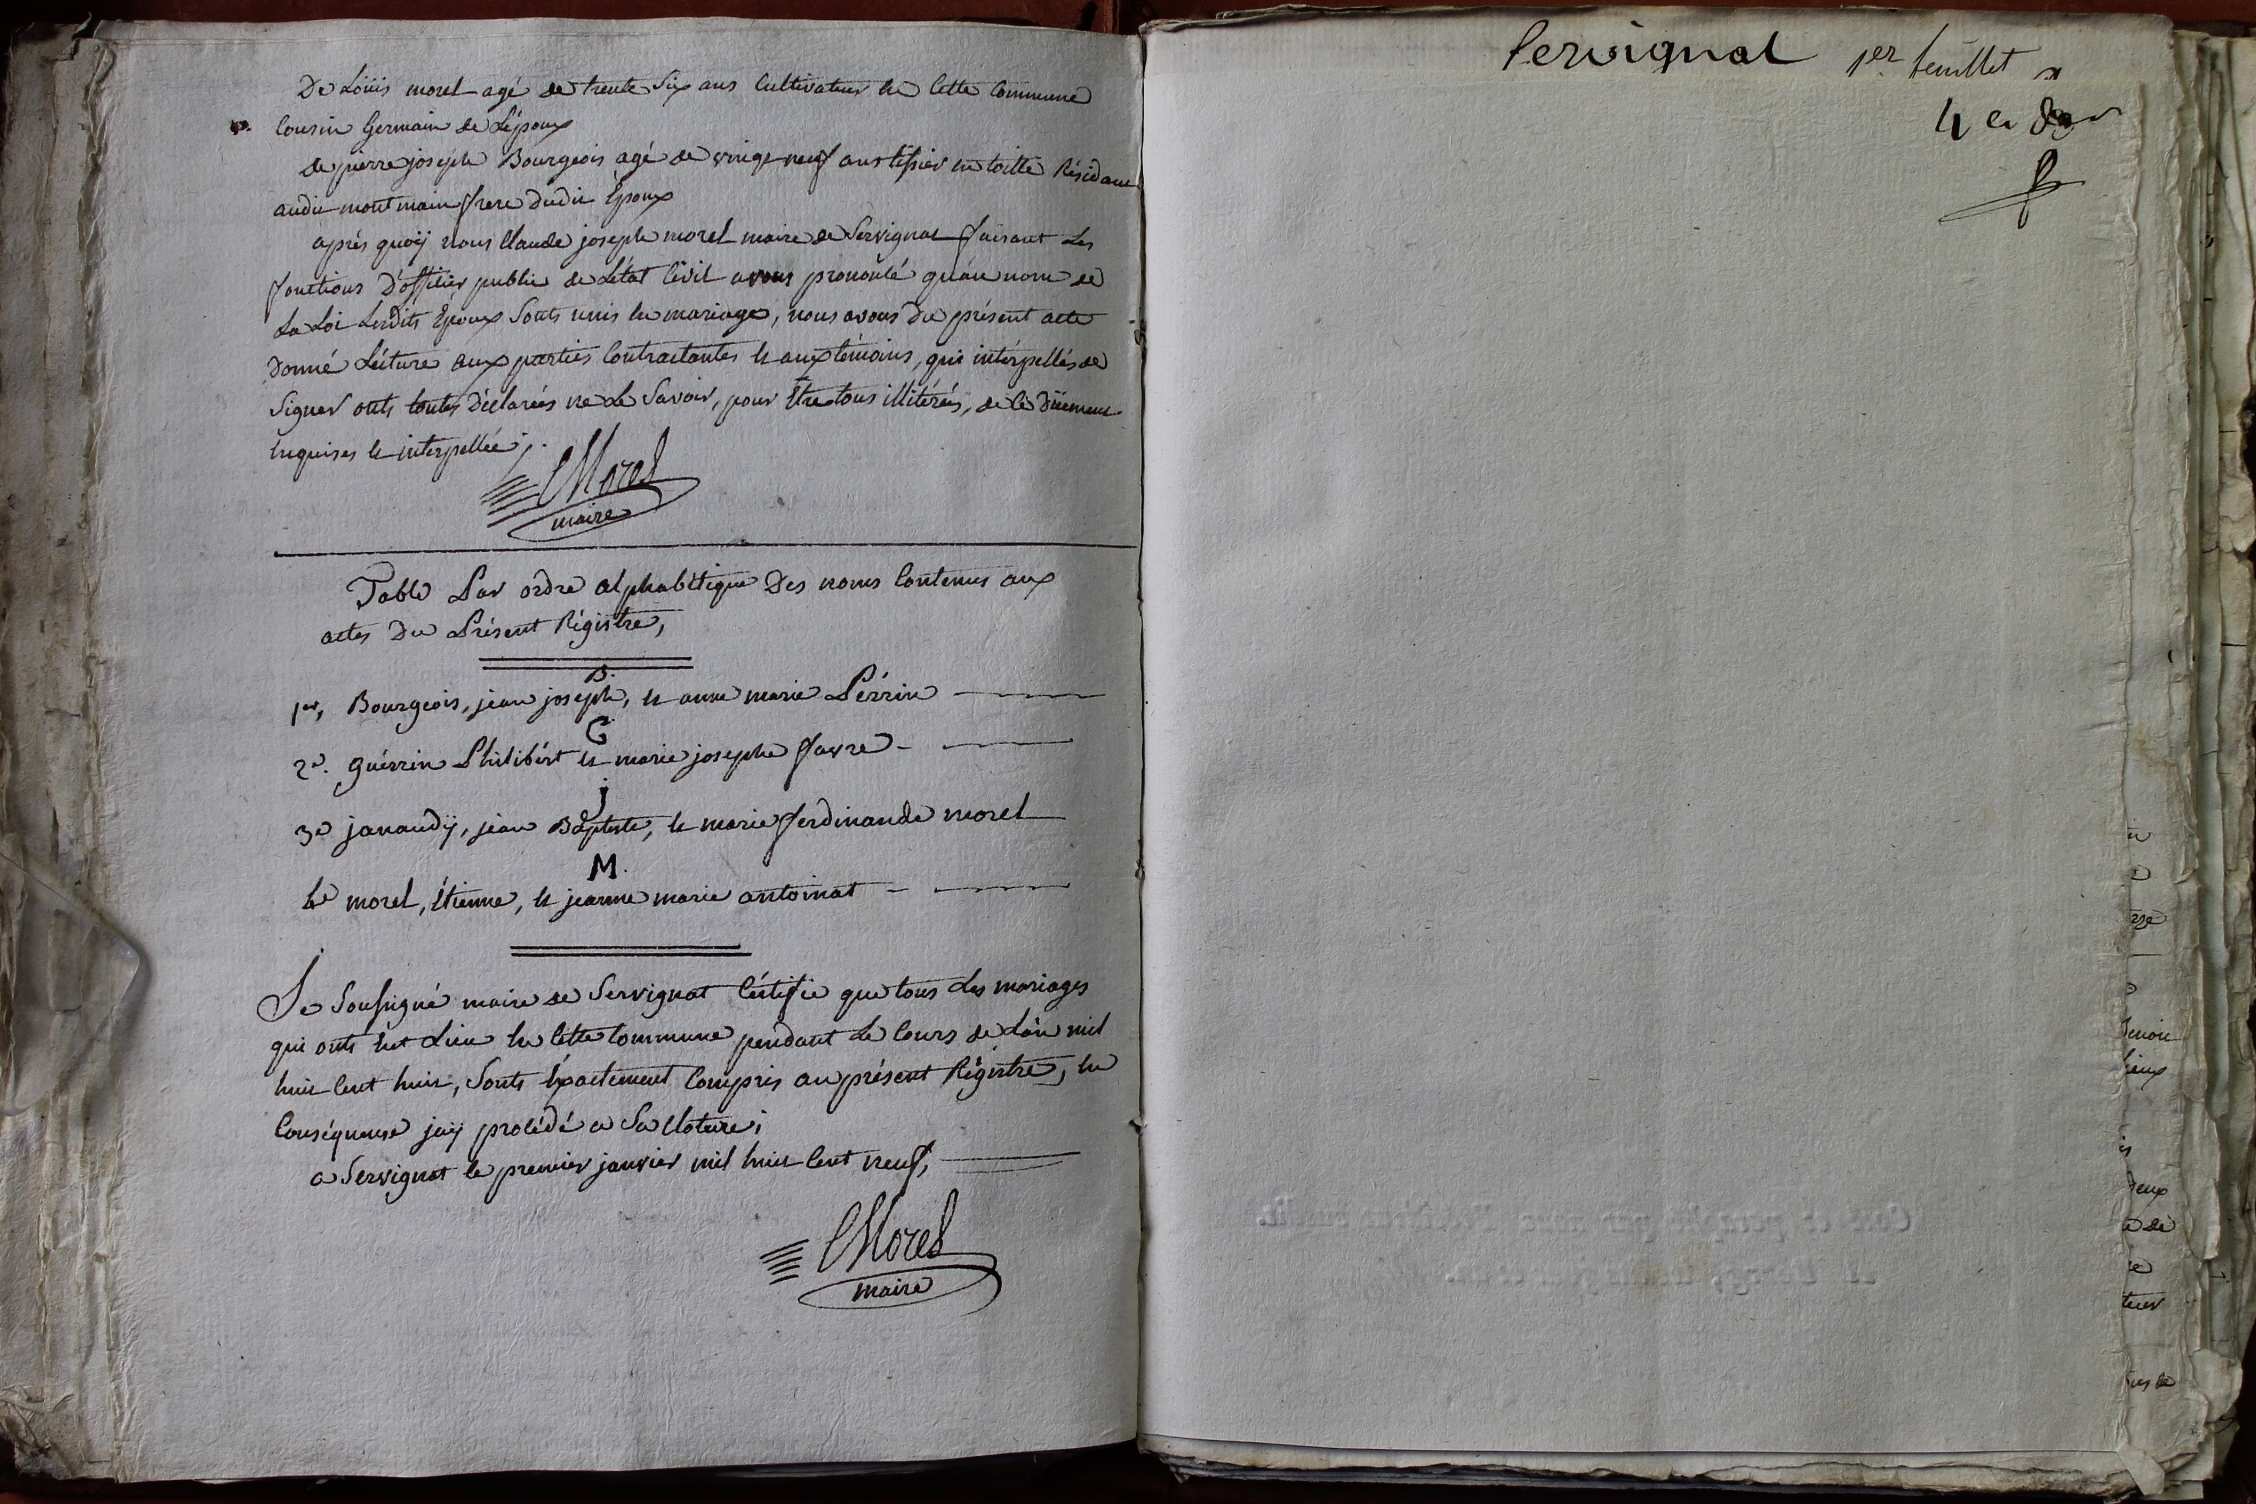 De Loüis morel agé de trente Six ans Cultivateur en Cette Commune
Cousin Germain de L'époux
de pierre joseph Bourgeois agé de vingt neuf ans tissier en toille Résidant
audit montmain frere dudit Époux
après quoÿ nous Claude joseph morel maire de Servignat faisant Les
fonctions d'officier public de L'état Civil avons prononcé qu'au nom de
La Loi Lesdits Époux Sonts unis en mariage, nous avons du présent acte
donné Lécture aux parties Contractantes et aux témoins, qui intérpellés de
Signer onts toutes déclarées ne Le Savoir, pour Étre tous illitérés, de Ce düement
enquises et interpellées.
CMorel
maire
Table Par ordre alphabétique Des noms Contenus aux
actes Du Présent Régistre,
B.
1er, Bourgeois, jean joseph, et anne marie Pérrin
G
2e. guérrin Philibért et marie josephe favre
j
3e janaudÿ, jéan Baptiste, et marie ferdinande morel
M.
4e morel, étienne, et jeanne marie antoinat
Je Soussigné maire de Servignat Cértifie que tous Les mariages
qui onts eut Lieu en Cette Commune pendant Le Cours de L'an mil
huit Cent huit, Sonts éxactement Compris au présent Régistre, en
Conséquense jaÿ procédé a Sa Cloture;
a Servignat le premier janvier mil huit Cent neuf,
CMorel
maire
Servignat 1er feuillet